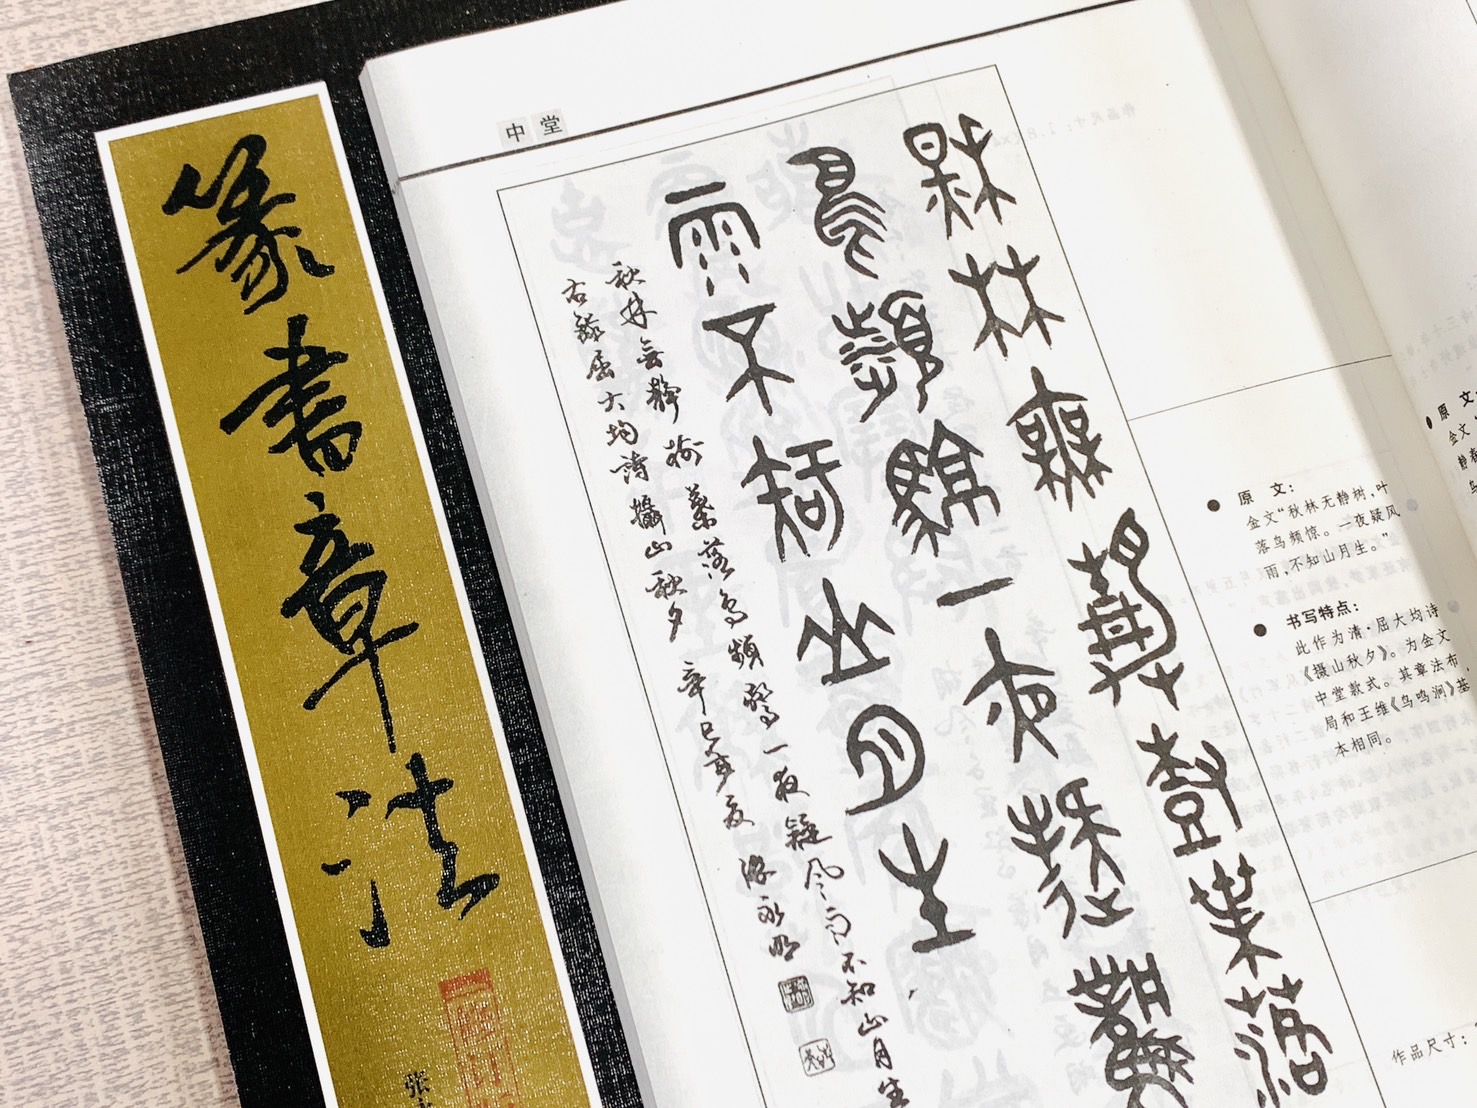 篆書章法
张
中堂
秋林無静樹葉落
鳥頻驚一夜疑風
雨不知山月生
秋林無静樹葉落鳥頻驚一夜疑風雨不知山月生
右錄屈大均詩攝山秋夕 辛巳年夏 永明
原 文：
金文“秋林无静树，叶
落鸟频惊。一夜疑风
雨，不知山月生。”
书写特点：
此作为清·屈大均诗
《摄山秋夕》。为金文
中堂款式。其章法布
局和王维《鸟鸣涧》基
本相同。
作品尺寸：
原 文
金文
静春